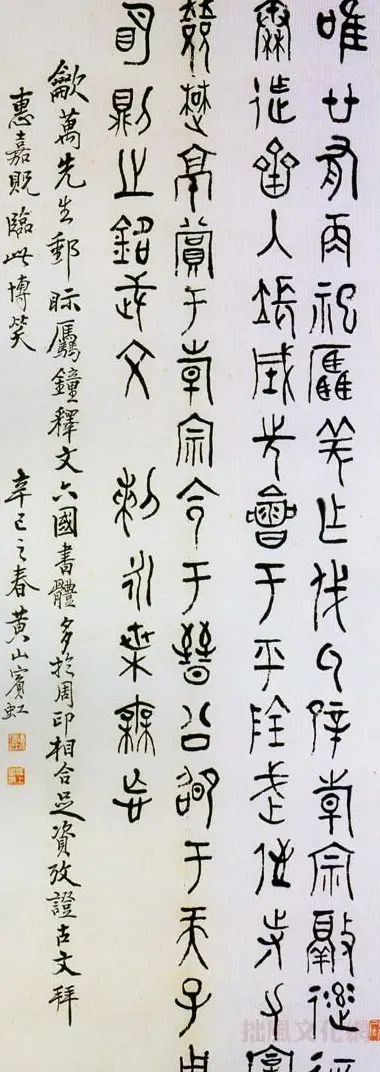 唯廿又再祀驫羌乍戎氒辟倝宗敲達征
秦迮齊入長城先會于平陰武侄寺力
楚京賞于倝宗令于晉公卲于天子用
明則之銘武文剌永枼無忘
萬先生郵眎驫鐘釋文六國書體多於周印相合足資攷證古文拜
惠嘉貺臨此博笑
辛巳之春黃山賓虹
拙風文化網